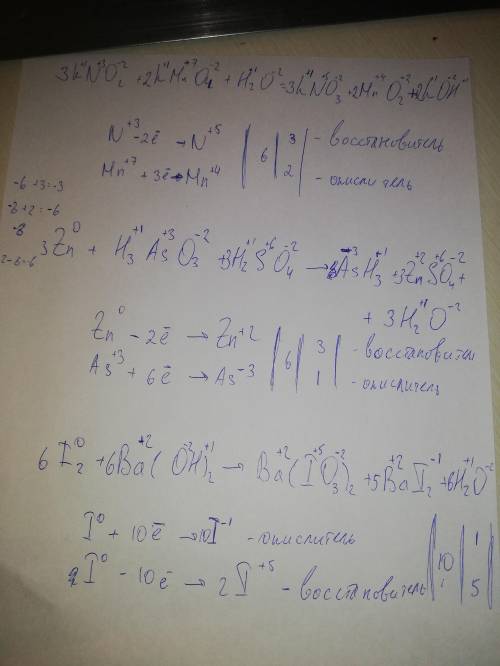 3K⁺¹N⁺³O₂⁻² + 2K⁺¹Mn⁺⁷O₄⁻² + H₂O⁻² = 3K⁺¹N⁺⁵O₃⁻² + 2Mn⁺⁴O₂⁻² + 2K⁺¹O⁻²H⁺¹
N⁺³ - 2ē → N⁺⁵ | 6 | 3 | - восстановитель
Mn⁺⁷ + 3ē → Mn⁺⁴ | 2 | - окислитель
-6 + 3 = -3
-8 + 2 = -6
-8
2-8=-6
3Zn⁰ + H₃⁺¹As⁺³O₃⁻² + 3H₂⁺¹S⁺⁶O₄⁻² → As⁻³H₃⁺¹ + 3Zn⁺²S⁺⁶O₄⁻² +
+ 3H₂⁺¹O⁻²
Zn⁰ - 2ē → Zn+2 | 6 | 3 | - восстановител
As⁺³ + 6ē → As⁻³ | 1 | - окислитель
6I₂⁰ + 6Ba⁺²(O⁻²H⁺¹)₂ → Ba⁺²(I⁺⁵O₃⁻²)₂ + 5Ba⁺²I₂⁻¹ + 6H₂⁺¹O⁻²
I⁰ + 10ē → 10I⁻¹ - окислитель | 10 | 1
2I⁰ - 10ē → 2I⁺⁵ - восстановитель | 5